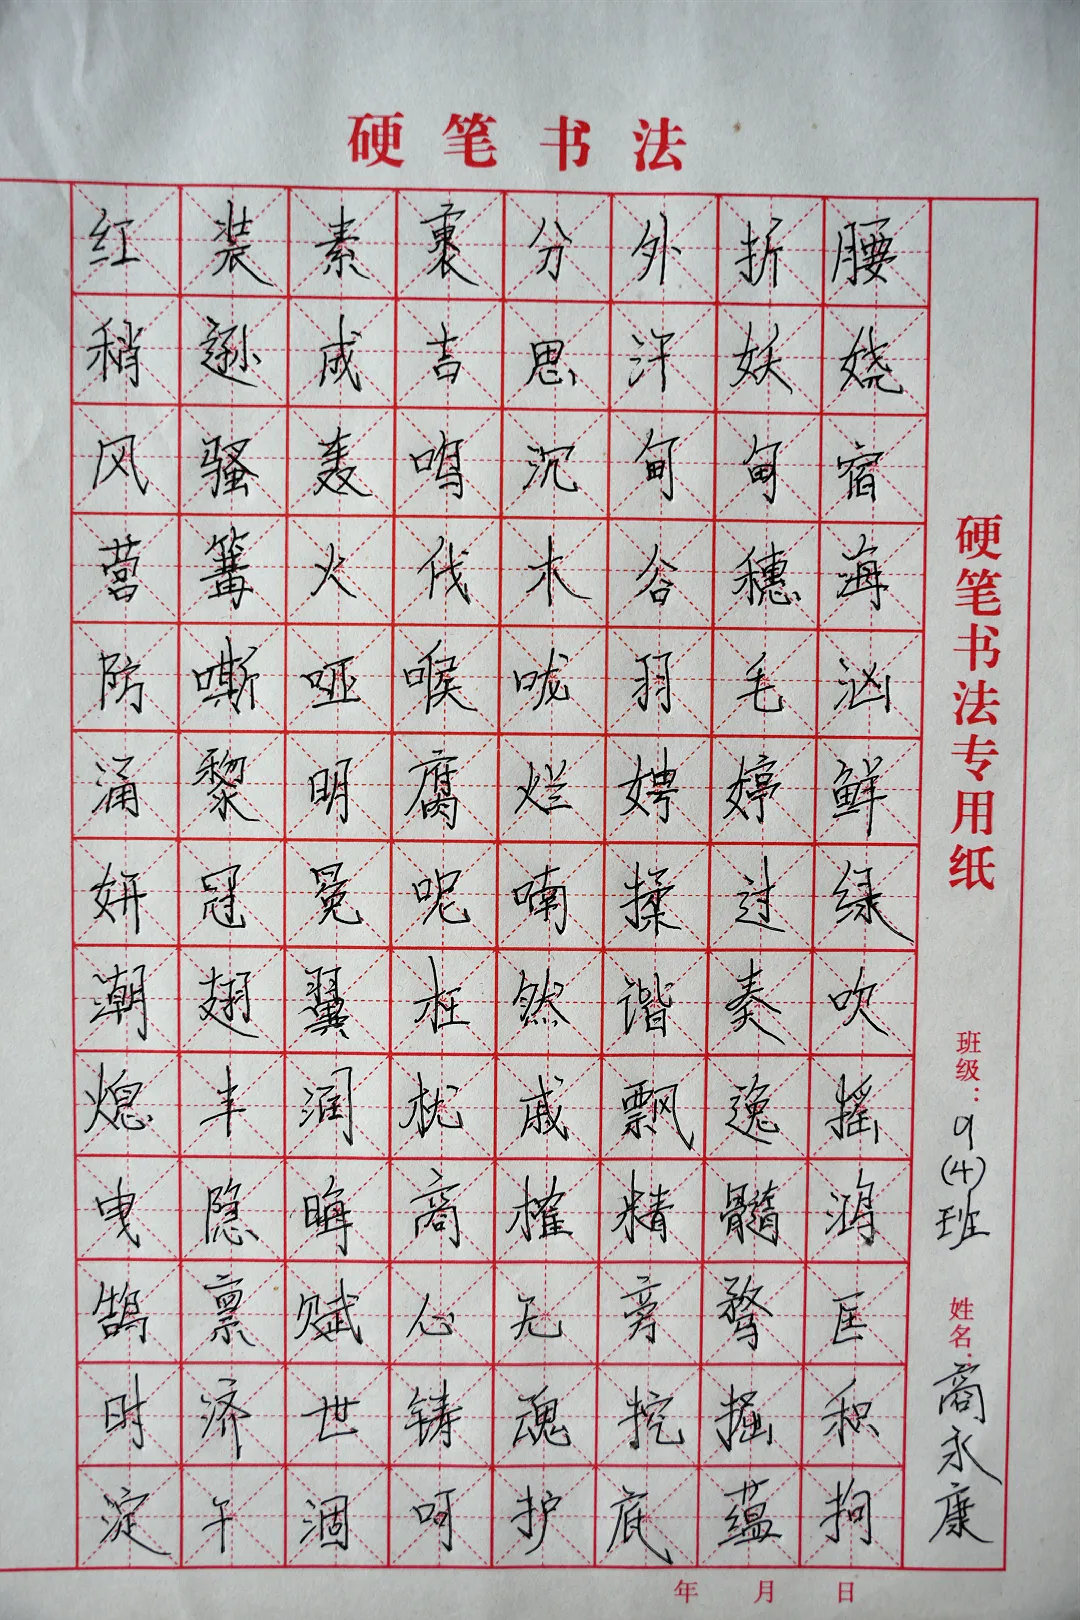 硬笔书法
红装素裹分外折腰
稍逊成吉思汗妖娆
风骚轰鸣沉甸甸宿
营篝火伐木谷穗海
防嘶哑喉咙羽毛汹
涌黎明腐烂娉婷鲜
妍冠冕呢喃揉过绿
潮翅翼枉然谐奏吹
熄丰润忧戚飘逸摇
曳隐晦商榷精髓鸿
鹄禀赋心无旁骛匡
时济世铸魂挖掘积
淀午涸呵护底蕴拘
硬笔书法专用纸
班级：9(4)班
姓名：商永康
年 月 日